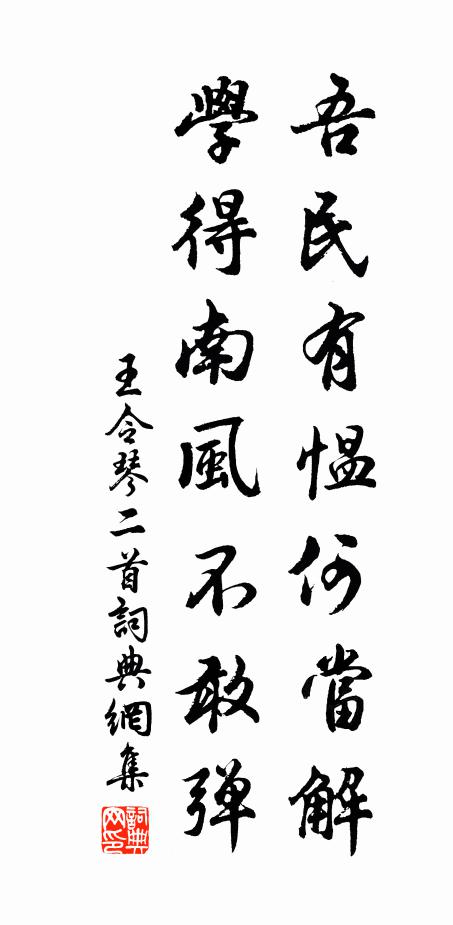 吾民有愠何當解
學得南風不敢弹
王令琴二首詞典網集
詞典網印